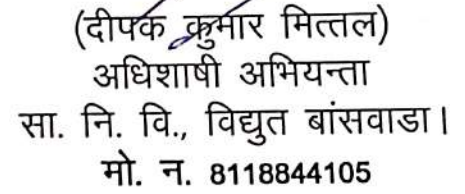 (दीपक कुमार मित्तल)
अधिशाषी अभियन्ता
सा. नि. वि., विद्युत बांसवाडा।
मो. न. 8118844105